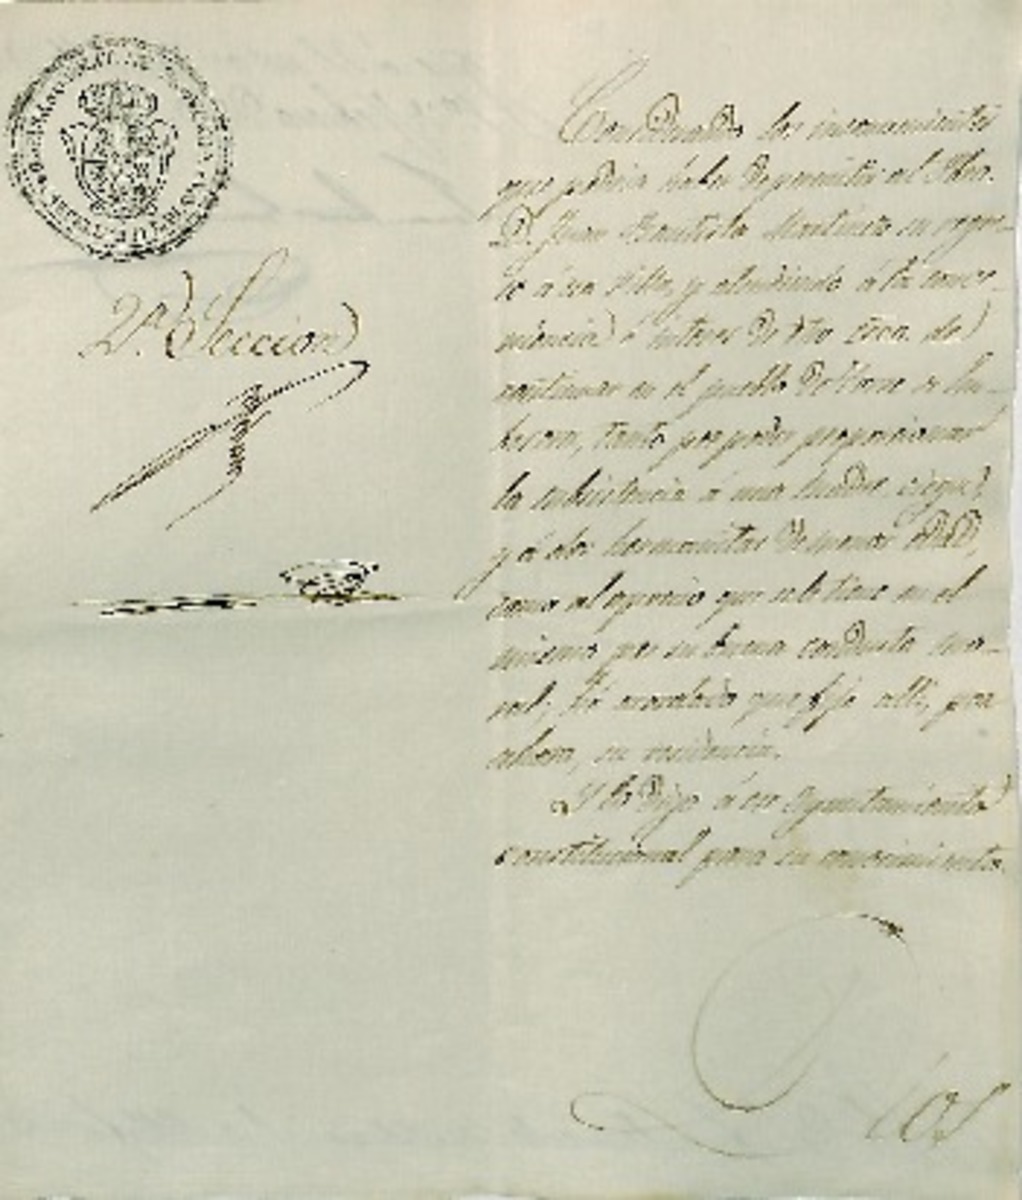 2ª Seccion
Considerados los inconvenientes
que podria haber de permitir al Pbro.
D. Juan Bautista Martinez su regre-
so á esa Villa, y atendiendo á la conve-
niencia é interes de dho de
continuar en el pueblo de
tanto por poder proporcionar
la subsistencia á una madre ciega,
y á dos hermanitas de menor edad,
como al aprecio que se le tiene en el
mismo por su buena conducta mo-
ral; hé acordado que fije alli, por
ahora, su residencia.
Y lo digo á ese Ayuntamiento
constitucional para su conocimiento.
Dios